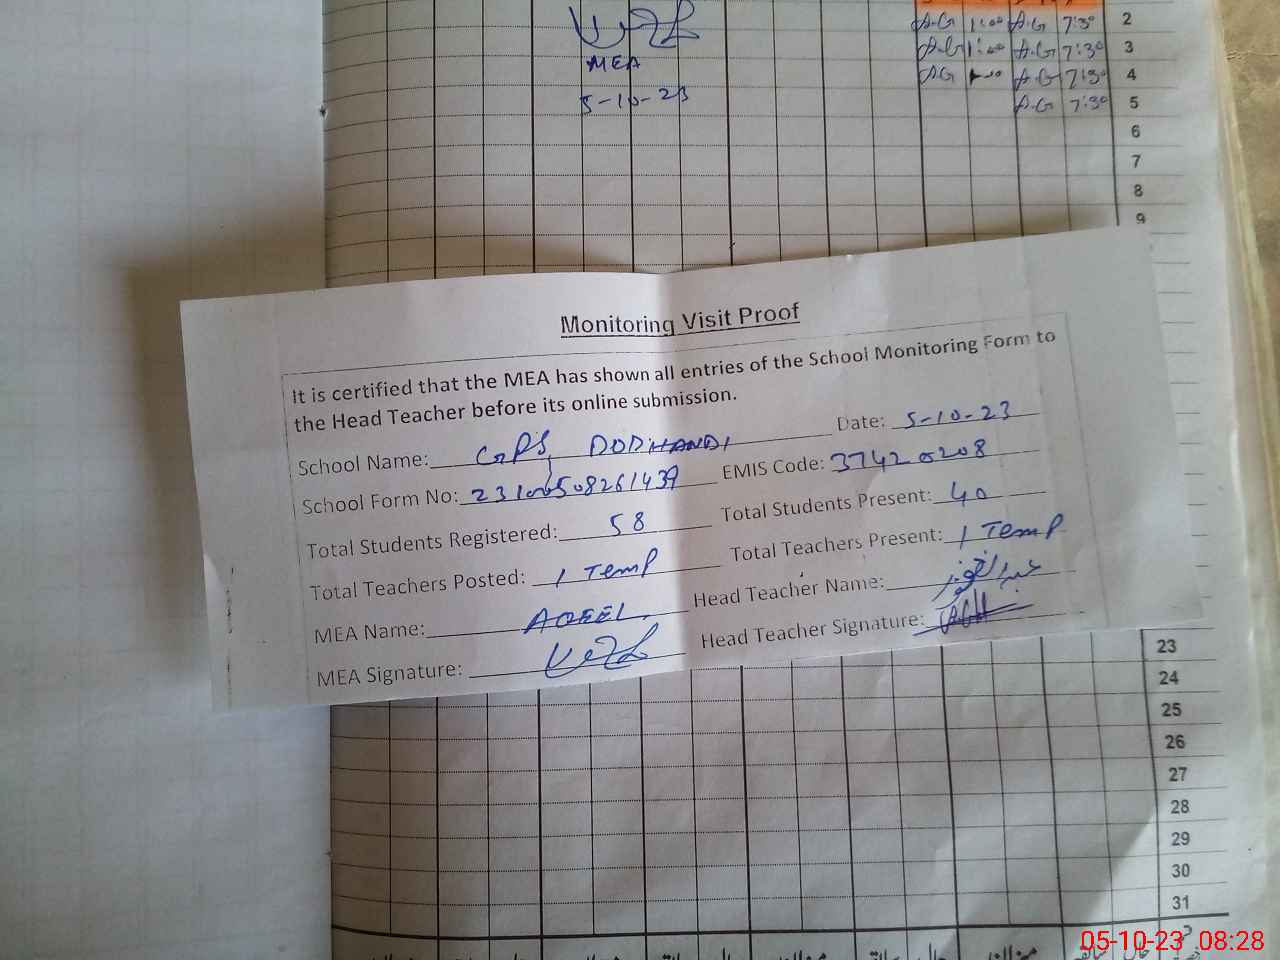 A.G 1:00 A.G 7:30 2
A.G 1:00 A.G 7:30 3
AG A.G 7:30 4
A.G 7:30 5
MEA
5-10-23
6
7
8
9
Monitoring Visit Proof
It is certified that the MEA has shown all entries of the School Monitoring Form to
the Head Teacher before its online submission.
School Name: GPS DODHANDI Date: 5-10-23
School Form No: EMIS Code: 37420208
Total Students Registered: 58 Total Students Present: 40
Total Teachers Posted: 1 Temp Total Teachers Present: 1 Temp
MEA Name: AQEEL Head Teacher Name:
MEA Signature: Head Teacher Signature:
23
24
25
26
27
28
29
30
31
05-10-23 08:28